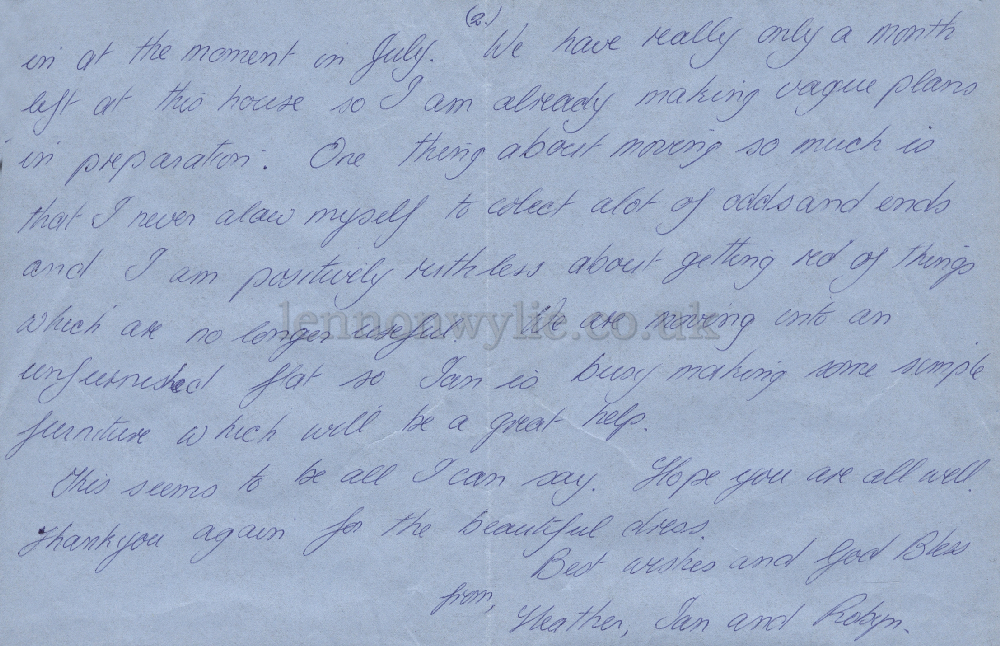 (2.)
in at the moment in July. We have really only a month
left at this house so I am already making vague plans
in preparation. One thing about moving so much is
that I never alow myself to colect alot of odds and ends
and I am positively ruthless about getting rid of things
which are no longer useful. We are moving into an
lennonwylie.co.uk
unfurnished flat so Ian is busy making some simple
furniture which will be a great help.
This seems to be all I can say. Hope you are all well.
Thankyou again for the beautiful dress.
Best wishes and God Bless
from,
Heather, Ian and Robyn.